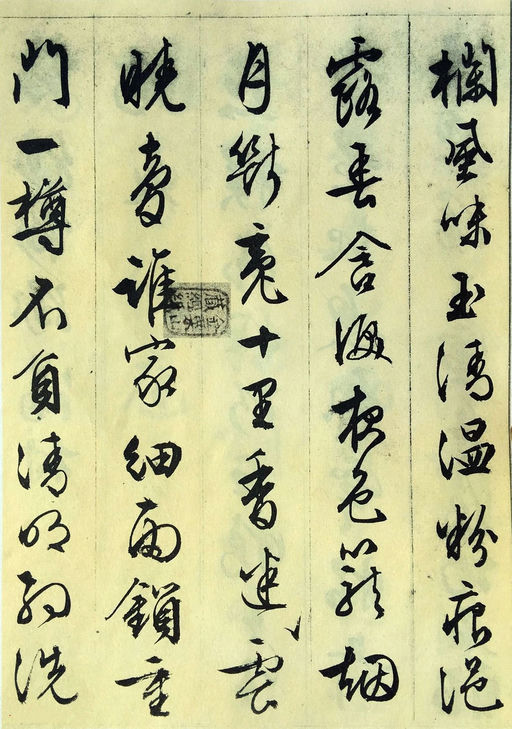 欄風味玉清温粉痕浥
露春含淚夜色籠烟
月斷魂十里香迷雲
曉夢誰家細雨鎖重
門一樽不負清明約洗